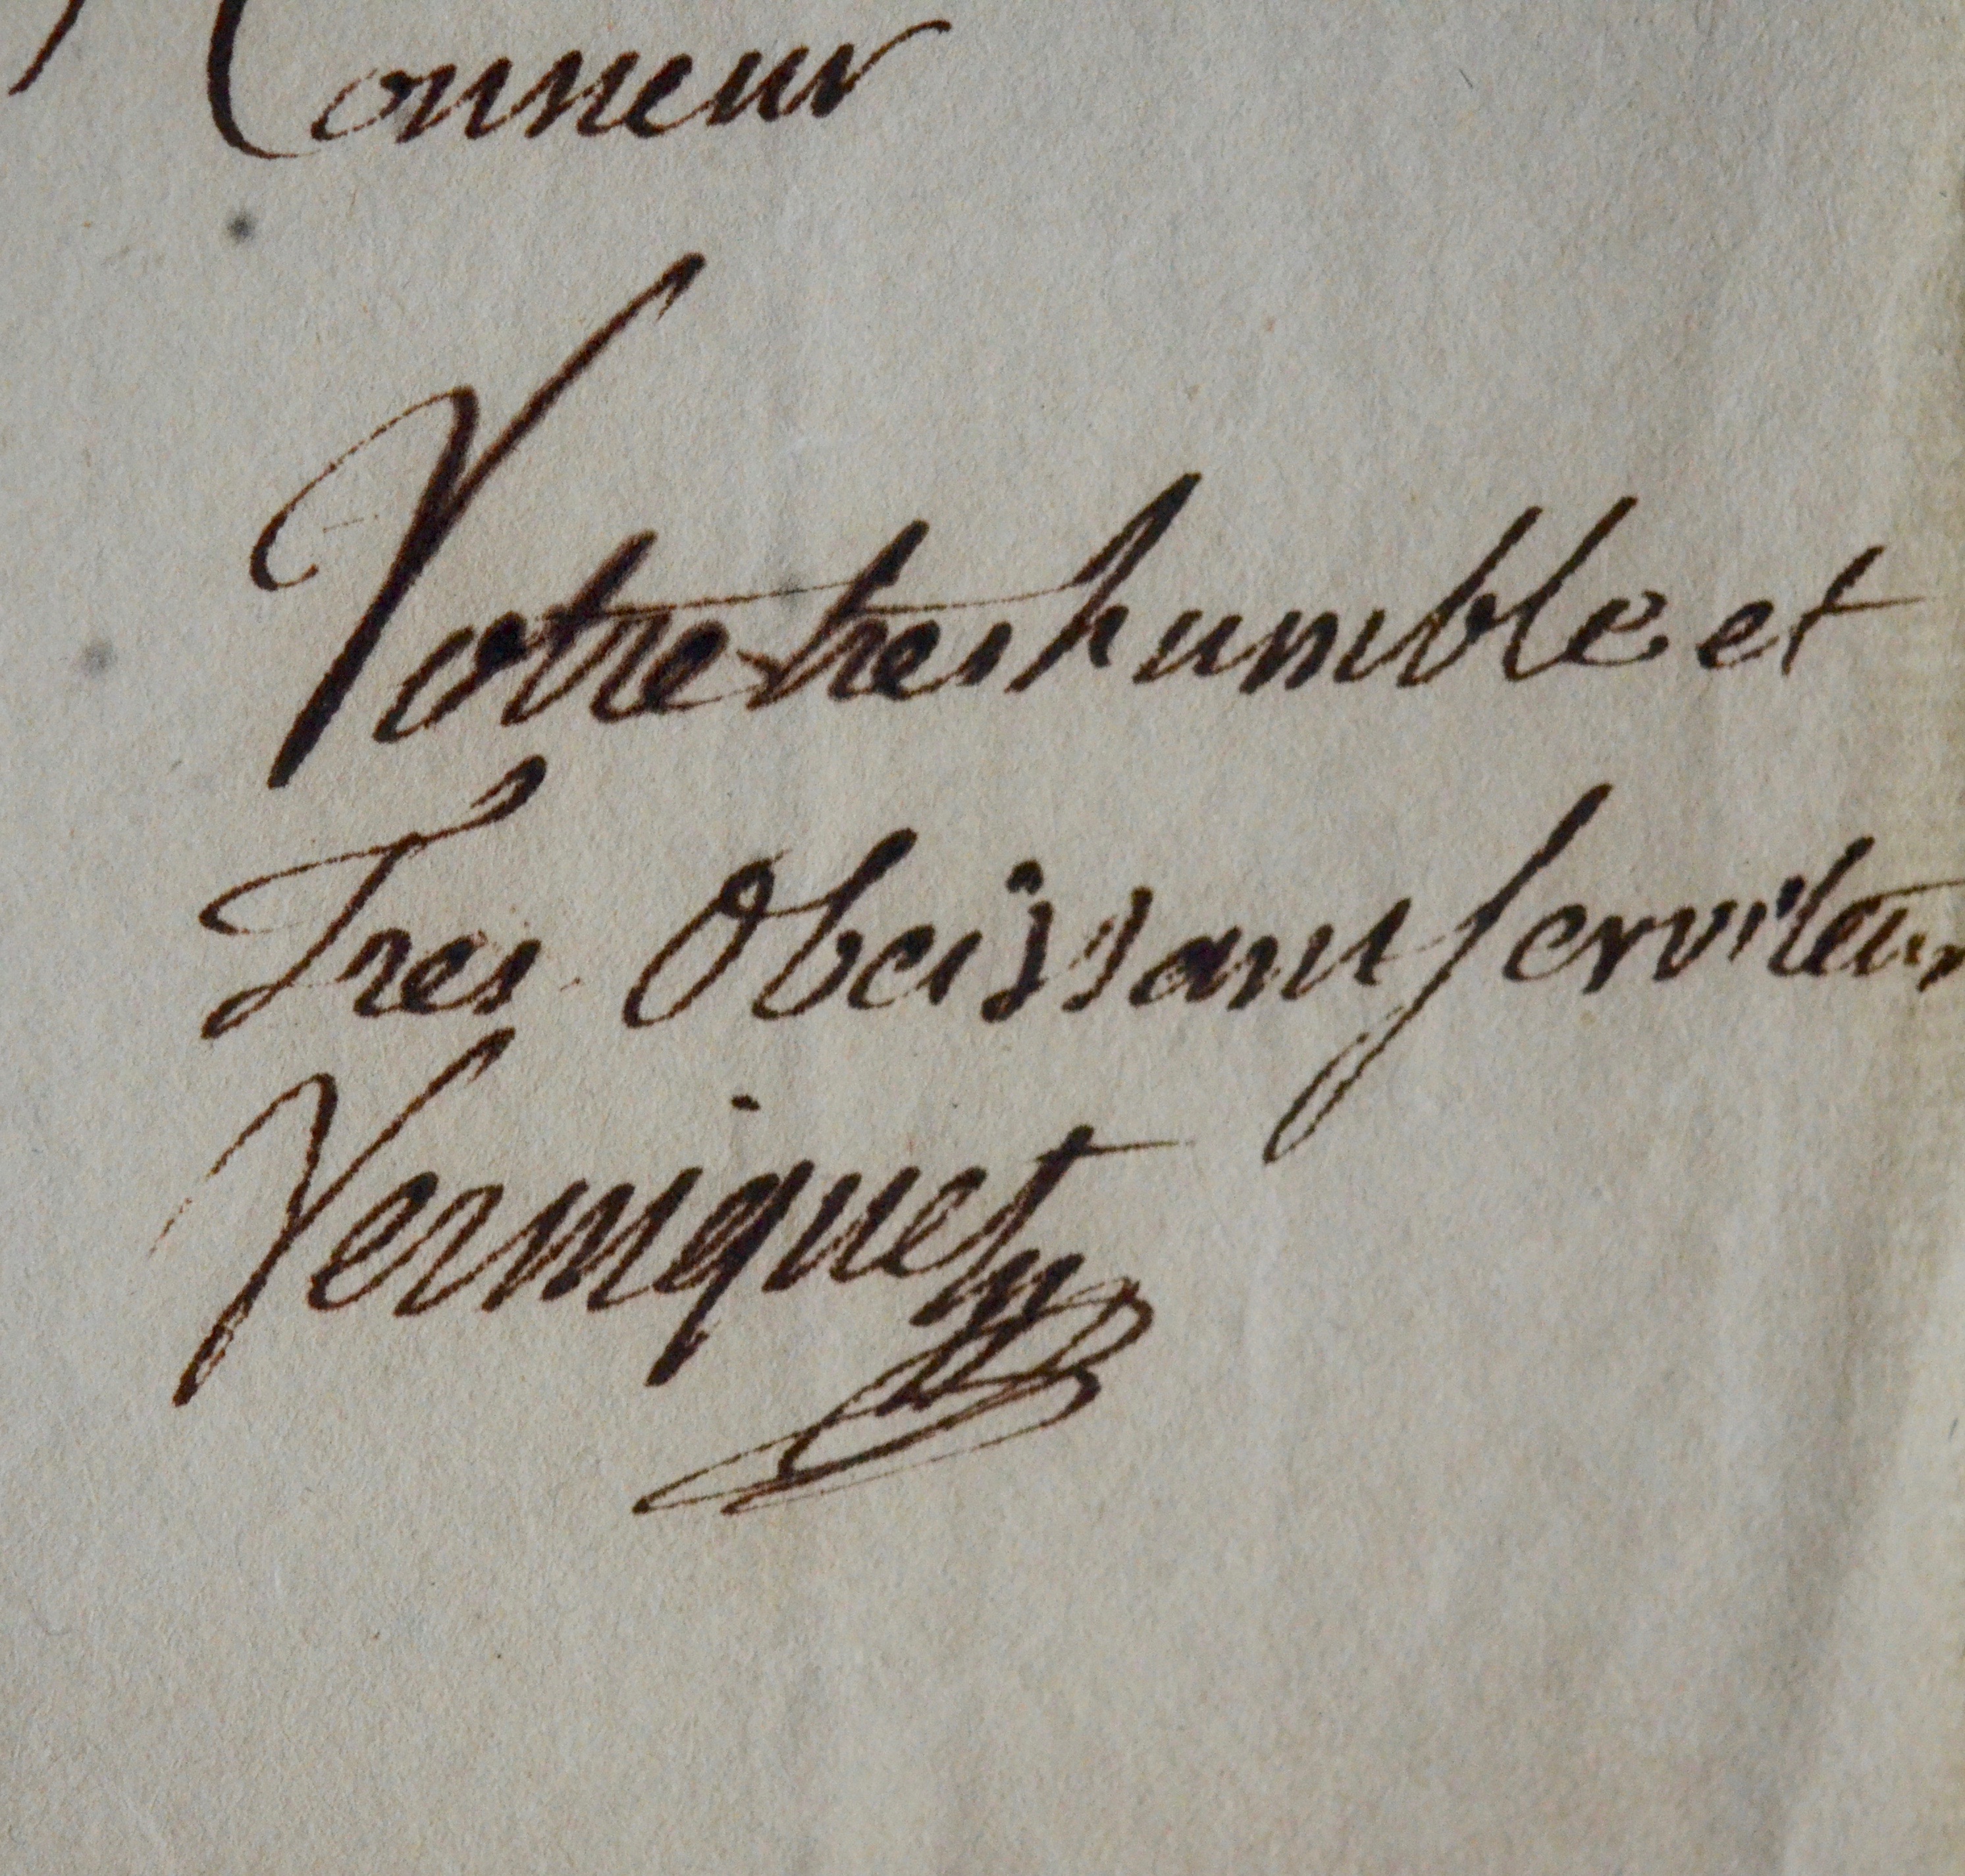 Monneur
Votre tres humble et
Tres Obeissant serviteur
Verniquet